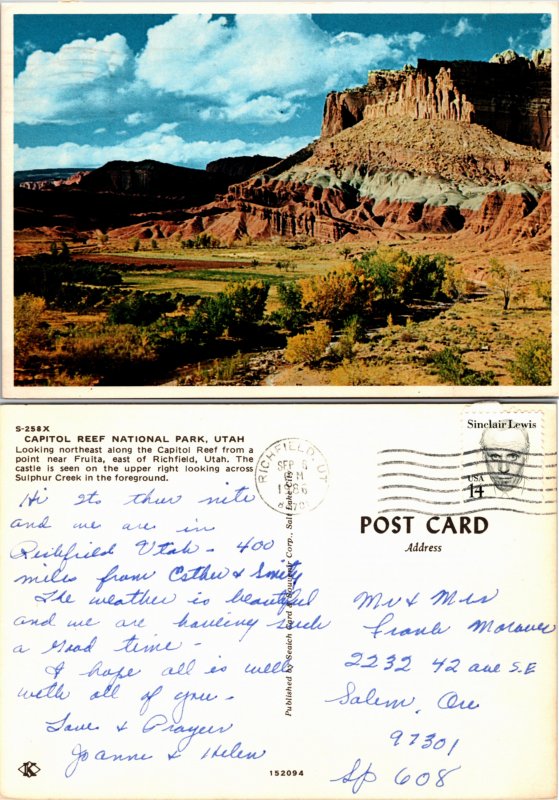 S-258X
CAPITOL REEF NATIONAL PARK, UTAH
Looking northeast along the Capitol Reef from a
point near Fruita, east of Richfield, Utah. The
castle is seen on the upper right looking across
Sulphur Creek in the foreground.
Hi Its thur nite
and we are in
Richfield Utah - 400
miles from Esther & Smitty
The weather is beautiful
and we are having such
a good time -
I hope all is well
with all of you -
Love & Prayers
Joanne & Helen
Published by Seaich Card & Souvenir Corp., Salt Lake City
152094
K
RICHFIELD, UT
SEP 5
PM
1986
Sinclair Lewis
USA
14
POST CARD
Address
Mr & Mrs
Frank Moraver
2232 42 ave S.E
Salem, Ore
97301
Sp 608